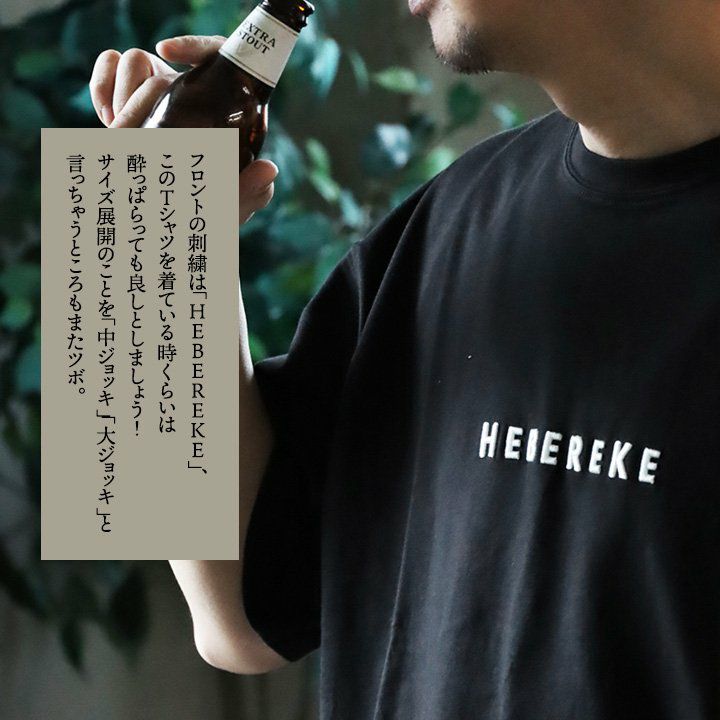 フロントの刺繍は「HEBEREKE」、
このTシャツを着ている時くらいは
酔っぱらっても良しとしましょう！
サイズ展開のことを「中ジョッキ」「大ジョッキ」と
言っちゃうところもまたツボ。
EXTRA
STOUT
HEBEREKE